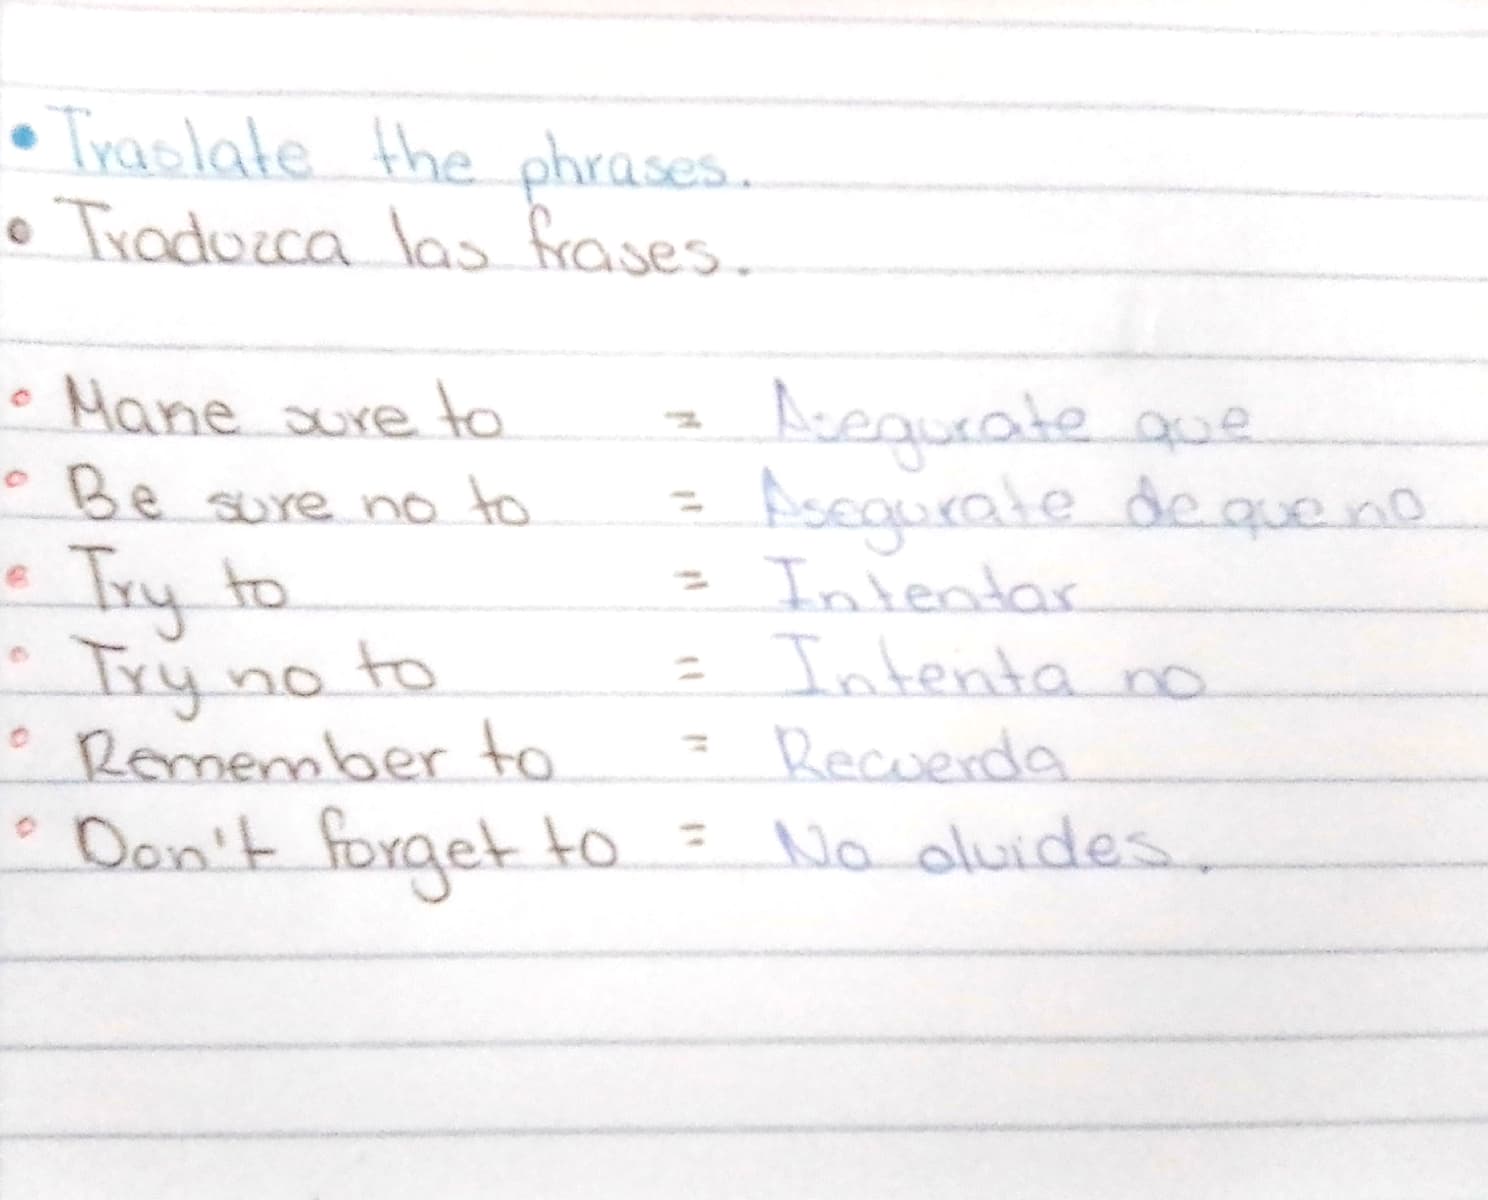 • Traslate the phrases.
• Traduzca las frases.
• Mane sure to = Asegurate que
• Be sure no to = Asegurate de que no
• Try to = Intentar
• Try no to = Intenta no
• Remember to = Recuerda
• Don't forget to = No oluides.